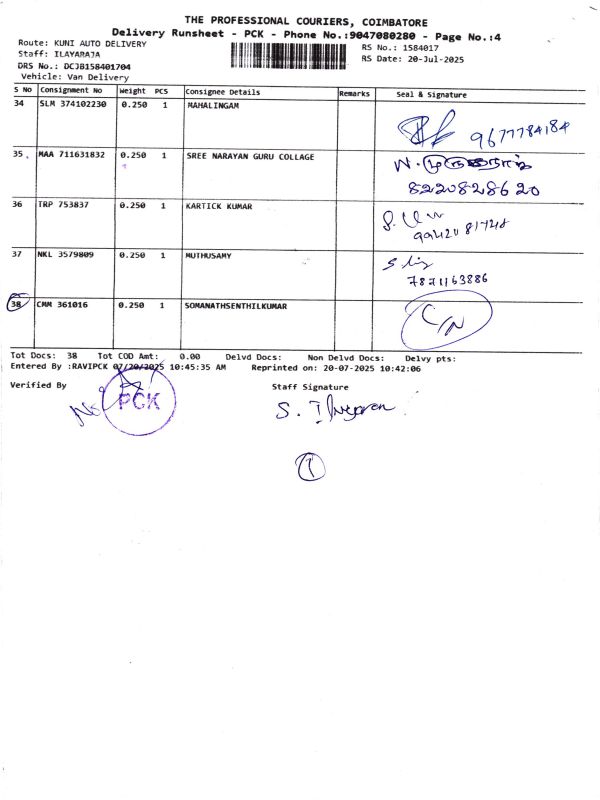 THE PROFESSIONAL COURIERS, COIMBATORE
Delivery Runsheet - PCK - Phone No.:9047080280 - Page No.:4
Route: KUNI AUTO DELIVERY
Staff: ILAYARAJA
DRS No.: DCJB158401704
Vehicle: Van Delivery
RS No.: 1584017
RS Date: 20-Jul-2025
S No Consignment No Weight PCS Consignee Details Remarks Seal & Signature
34 SLM 374102230 0.250 1 MAHALINGAM
9677784184
35 MAA 711631832 0.250 1 SREE NARAYAN GURU COLLAGE
8220828620
36 TRP 753837 0.250 1 KARTICK KUMAR
9942081748
37 NKL 3579809 0.250 1 MUTHUSAMY
7871163886
38 CMM 361016 0.250 1 SOMANATHSENTHILKUMAR C/N
Tot Docs: 38 Tot COD Amt: 0.00 Delvd Docs: Non Delvd Docs: Delvy pts:
Entered By :RAVIPCK 07/20/2025 10:45:35 AM Reprinted on: 20-07-2025 10:42:06
Verified By Staff Signature
PCK
1